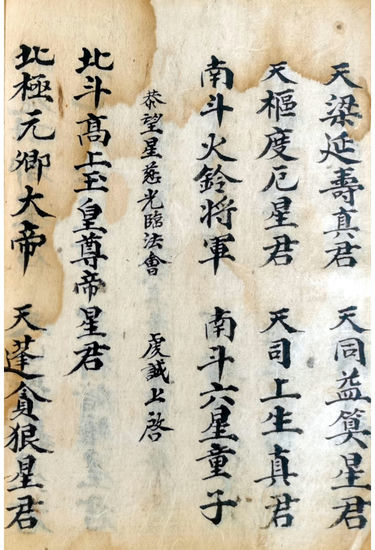 天梁延壽真君　天同益算星君
天樞度厄星君　天司上生真君
南斗火鈴將軍　南斗六星童子
恭望星慈光臨法會　虔誠上啓
北斗髙上玉皇尊帝星君
北極元卿大帝　天蓬貪狼星君